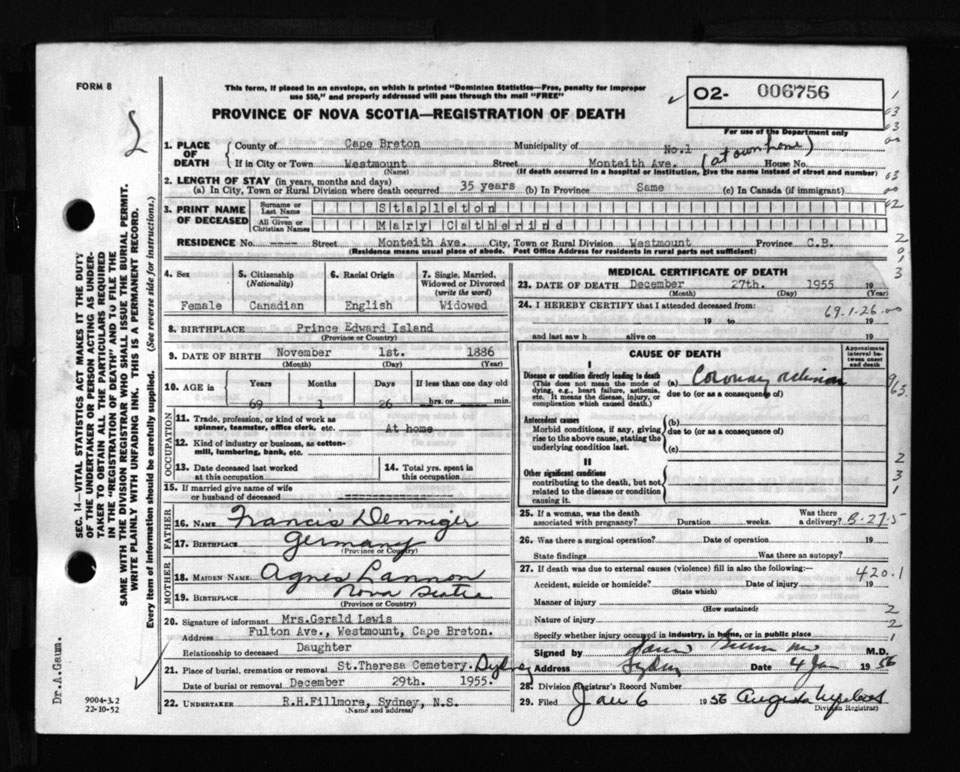 FORM 8
This form, if placed in an envelope, on which is printed "Dominion Statistics—Free, penalty for improper
use $50," and properly addressed will pass through the mail "FREE"
02- 006756
PROVINCE OF NOVA SCOTIA—REGISTRATION OF DEATH
For use of the Department only
1. PLACE OF DEATH
County of Cape Breton Municipality of No.1 (at own home)
If in City or Town Westmount Street Monteith Ave. House No.
(Name) (If death occurred in a hospital or institution, give the name instead of street and number)
2. LENGTH OF STAY (in years, months and days)
(a) In City, Town or Rural Division where death occurred 35 years (b) In Province Same (c) In Canada (if immigrant)
3. PRINT NAME OF DECEASED
Surname or Last Name Stapleton
All Given or Christian Names Mary Catherine
RESIDENCE No. ---- Street Monteith Ave. City, Town or Rural Division Westmount Province C.B.
(Residence means usual place of abode. Post Office Address for residents in rural parts not sufficient)
4. Sex
Female
5. Citizenship (Nationality)
Canadian
6. Racial Origin
English
7. Single, Married, Widowed or Divorced (write the word)
Widowed
8. BIRTHPLACE Prince Edward Island
(Province or Country)
9. DATE OF BIRTH November 1st. 1886
(Month) (Day) (Year)
10. AGE in
Years Months Days If less than one day old
69 1 26 hrs. or min.
OCCUPATION
11. Trade, profession, or kind of work as spinner, teamster, office clerk, etc. At home
12. Kind of industry or business, as cotton-mill, lumbering, bank, etc.
13. Date deceased last worked at this occupation
14. Total yrs. spent in this occupation
15. If married give name of wife or husband of deceased
FATHER
16. NAME Francis Denniger
17. BIRTHPLACE Germany
(Province or Country)
MOTHER
18. MAIDEN NAME Agnes Lannon
19. BIRTHPLACE Nova Scotia
(Province or Country)
20. Signature of informant Mrs.Gerald Lewis
Address Fulton Ave., Westmount, Cape Breton.
Relationship to deceased Daughter
21. Place of burial, cremation or removal St.Theresa Cemetery. Sydney
Date of burial or removal December 29th. 1955.
22. UNDERTAKER R.H.Fillmore, Sydney, N.S.
(Name and address)
MEDICAL CERTIFICATE OF DEATH
23. DATE OF DEATH December 27th. 1955 19
(Month) (Day) (Year)
24. I HEREBY CERTIFY that I attended deceased from:
69.1.26.00
19 to 19
and last saw h alive on 19
CAUSE OF DEATH
Approximate interval between onset and death
I
Disease or condition directly leading to death
(This does not mean the mode of dying, e.g., heart failure, asthenia, etc. It means the disease, injury, or complication which caused death.)
(a) Coronary
due to (or as a consequence of)
Antecedent causes
Morbid conditions, if any, giving rise to the above cause, stating the underlying condition last.
(b)
due to (or as a consequence of)
(c)
II
Other significant conditions
contributing to the death, but not related to the disease or condition causing it.
25. If a woman, was the death associated with pregnancy? Duration weeks. Was there a delivery?
26. Was there a surgical operation? Date of operation 19
State findings Was there an autopsy?
27. If death was due to external causes (violence) fill in also the following:—
420.1
Accident, suicide or homicide? Date of injury 19
(State which)
Manner of injury
(How sustained)
Nature of injury
Specify whether injury occured in industry, in home, or in public place
Signed by M.D.
Address Sydney Date 4 Jan 1956
28. Division Registrar's Record Number
29. Filed Jan 6 1956
Division Registrar
SEC. 14—VITAL STATISTICS ACT MAKES IT THE DUTY
OF THE UNDERTAKER OR PERSON ACTING AS UNDER-
TAKER TO OBTAIN ALL THE PARTICULARS REQUIRED
IN THE "REGISTRATION OF DEATH" AND TO FILE THE
SAME WITH THE DIVISION REGISTRAR WHO SHALL ISSUE THE BURIAL PERMIT.
WRITE PLAINLY WITH UNFADING INK. THIS IS A PERMANENT RECORD.
Every item of information should be carefully supplied. (See reverse side for instructions.)
Dr.A.Gaum.
9004-3.2
22-10-52